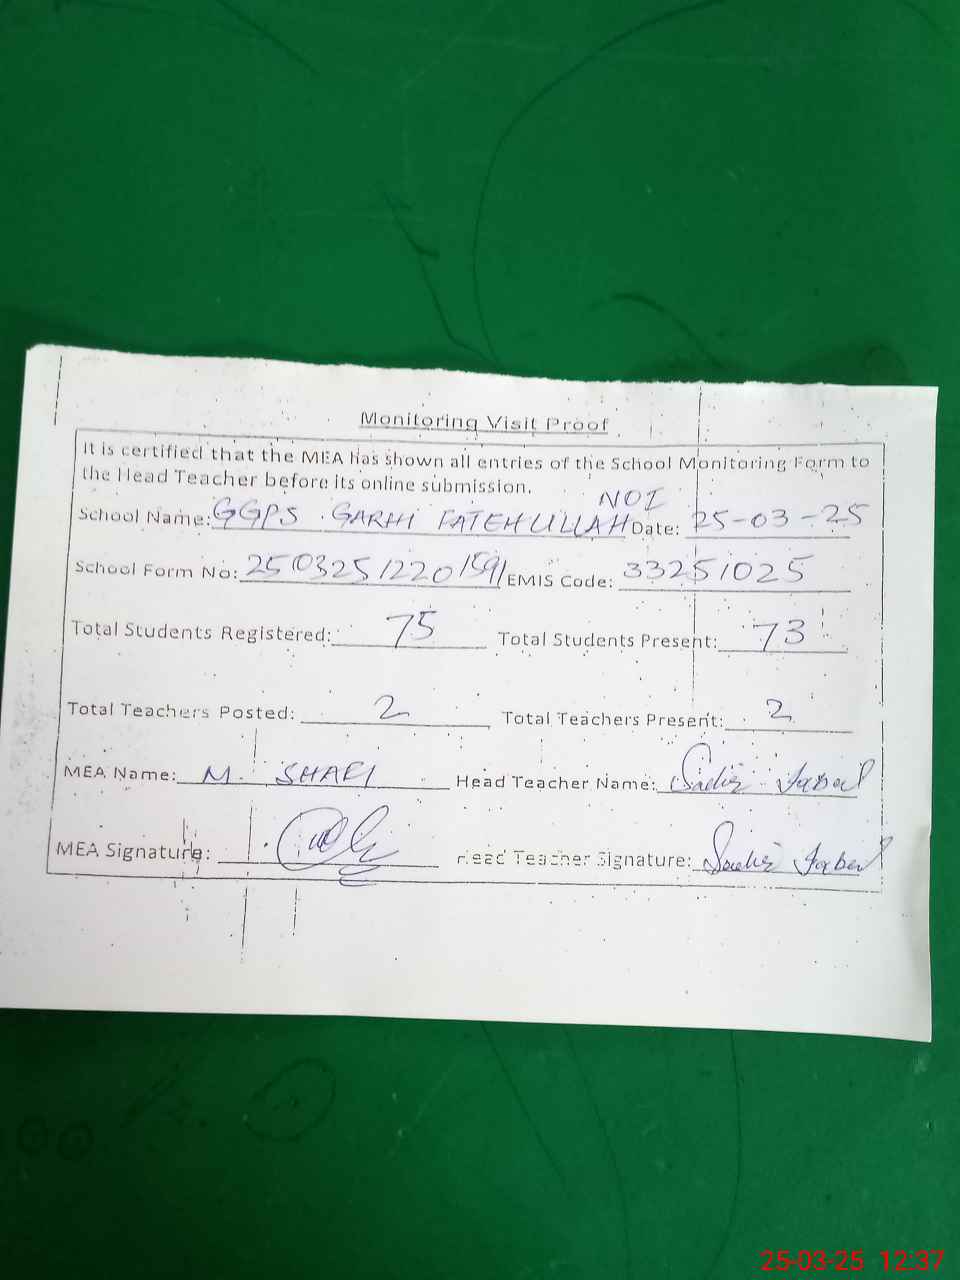 Monitoring Visit Proof
It is certified that the MEA has shown all entries of the School Monitoring Form to
the Head Teacher before its online submission.
NOI
School Name: GGPS GARHI FATEHULLAH Date: 25-03-25
School Form No: 25032512201591 EMIS Code: 33251025
Total Students Registered: 75 Total Students Present: 73
Total Teachers Posted: 2 Total Teachers Present: 2
MEA Name: M. SHAFI Head Teacher Name: Sadiz
MEA Signature: Head Teacher Signature: Sadiz
25-03-25 12:37